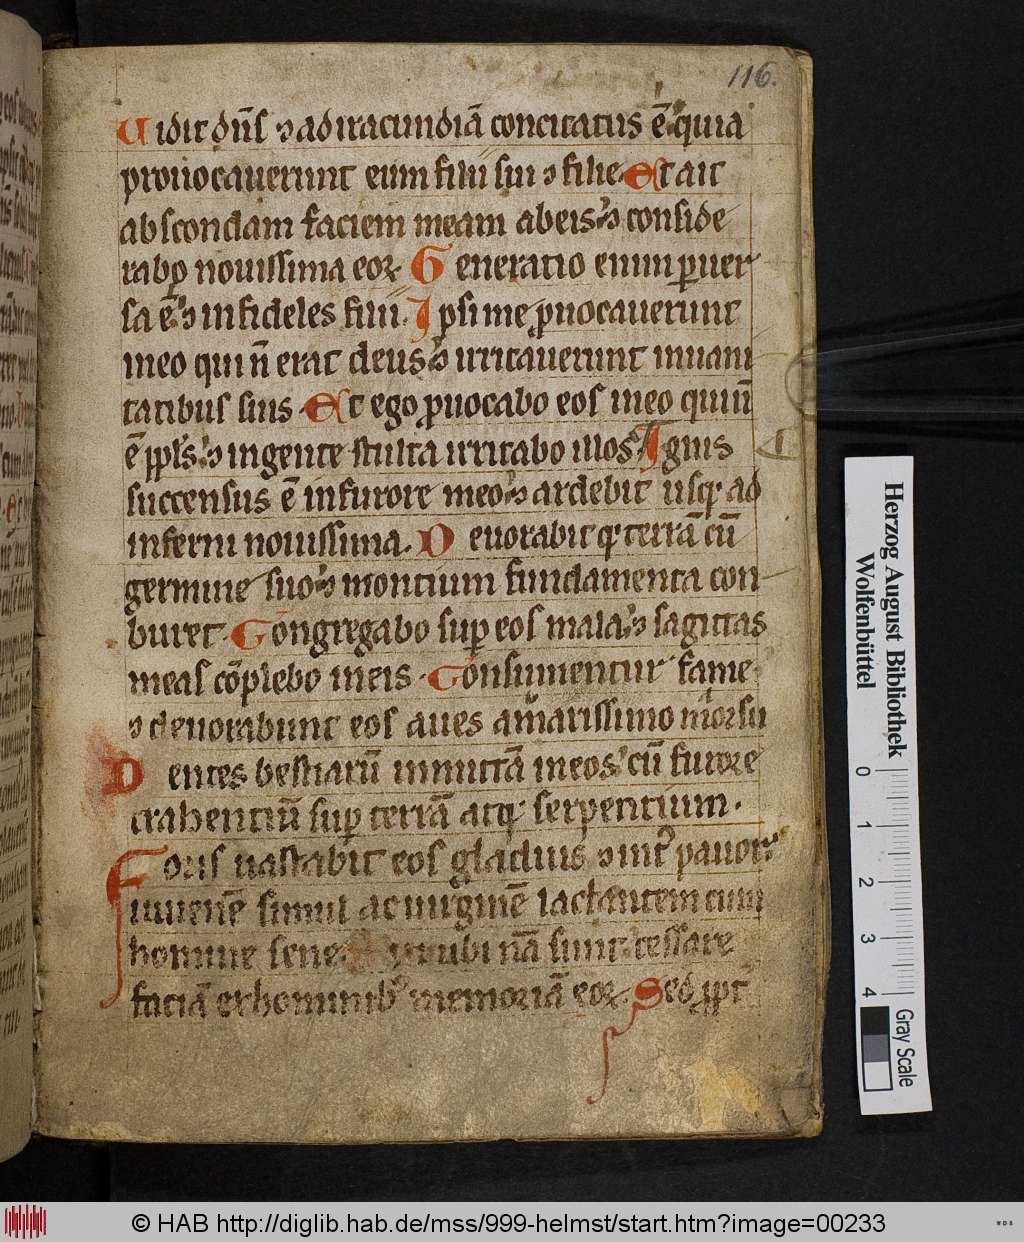 116.
Uidit dn̄s ⁊ ad iracundiā concitatus ē quia
prouocauerunt eum filii sui ⁊ filie. Et ait
abscondam faciem meam ab eis ⁊ conside
rabo nouissima eoꝝ. Generatio enim ꝑuer
sa ē ⁊ infideles filii. Ipsi me ꝓuocauerunt
in eo qui n̄ erat deus ⁊ irritauerunt in uani
tatibus suis. Et ego ꝓuocabo eos in eo qui n̄
ē ppl̓s ⁊ in gente stulta irritabo illos. Ignis
succensus ē in furore meo ⁊ ardebit usqꝫ ad
inferni nouissima. Deuorabitqꝫ terrā cū
germine suo ⁊ montium fundamenta con
buret. Congregabo suꝑ eos mala ⁊ sagittas
meas cōplebo in eis. Consumentur fame
⁊ deuorabunt eos aues amarissimo morsu
Dentes bestiarū inmittā in eos cū furore
trahentiū suꝑ terrā atqꝫ serpentium.
Foris uastabit eos gladius ⁊ int᷑ pauor
iuuenē simul ac uirginē lactantem cum
homine sene ubi nā sunt cessare
faciā ex hominibꝰ memoriā eoꝝ. Sed ꝓpt᷑
Herzog August Bibliothek
Wolfenbüttel
0 1 2 3 4
Gray Scale
© HAB http://diglib.hab.de/mss/999-helmst/start.htm?image=00233